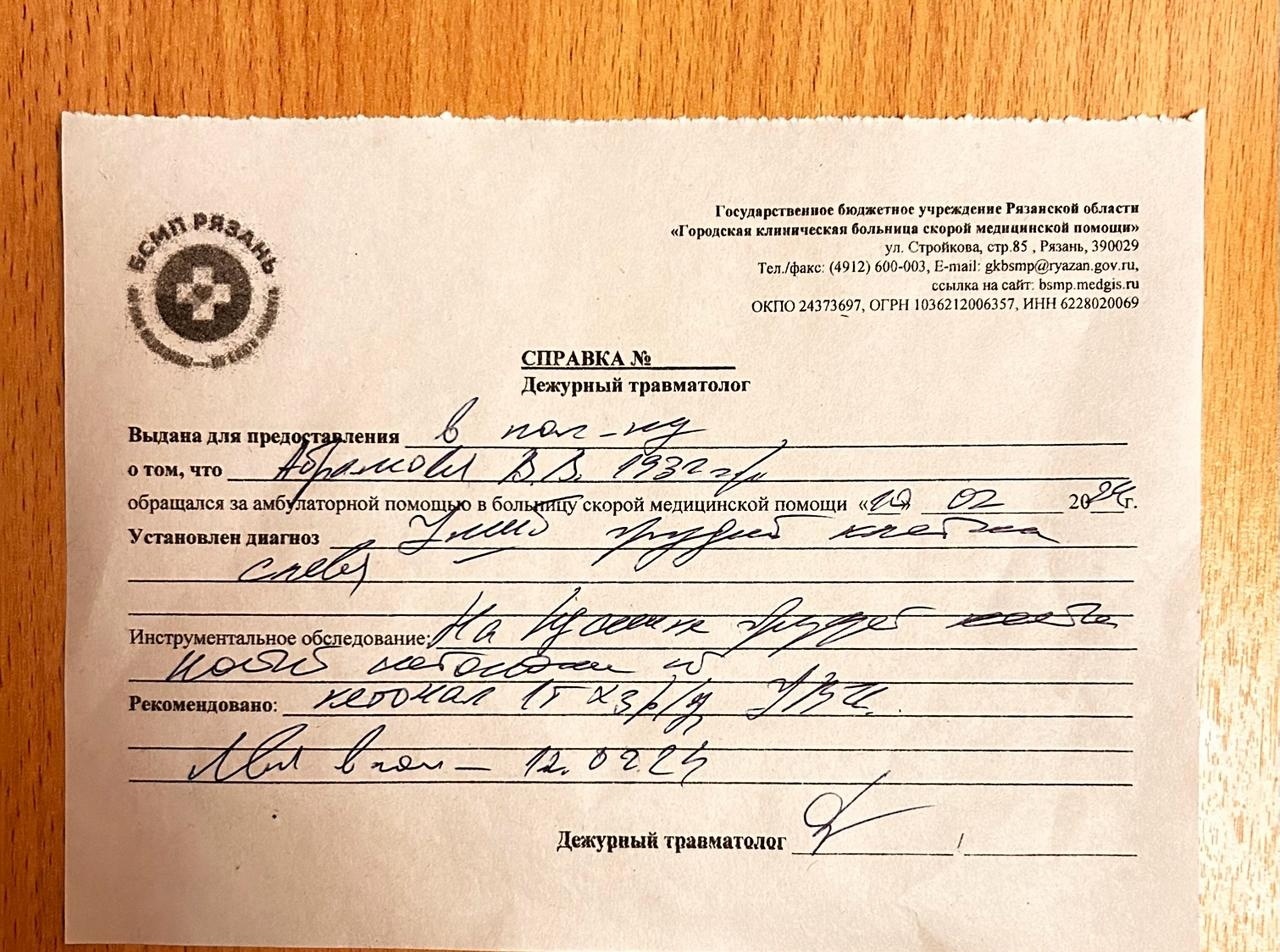 БСМП РЯЗАНЬ
Государственное бюджетное учреждение Рязанской области
«Городская клиническая больница скорой медицинской помощи»
ул. Стройкова, стр.85 , Рязань, 390029
Тел./факс: (4912) 600-003, E-mail: gkbsmp@ryazan.gov.ru,
ссылка на сайт: bsmp.medgis.ru
ОКПО 24373697, ОГРН 1036212006357, ИНН 6228020069
СПРАВКА №
Дежурный травматолог
Выдана для предоставления в пол-ку
о том, что В.В. 1932 г/р
обращался за амбулаторной помощью в больницу скорой медицинской помощи « 02 2024г.
Установлен диагноз Ушиб грудной клетки
слева
Инструментальное обследование: На грудной
Рекомендовано: кетонал 1т х 3 р/д
Явка в пол- 12.02.24
Дежурный травматолог /